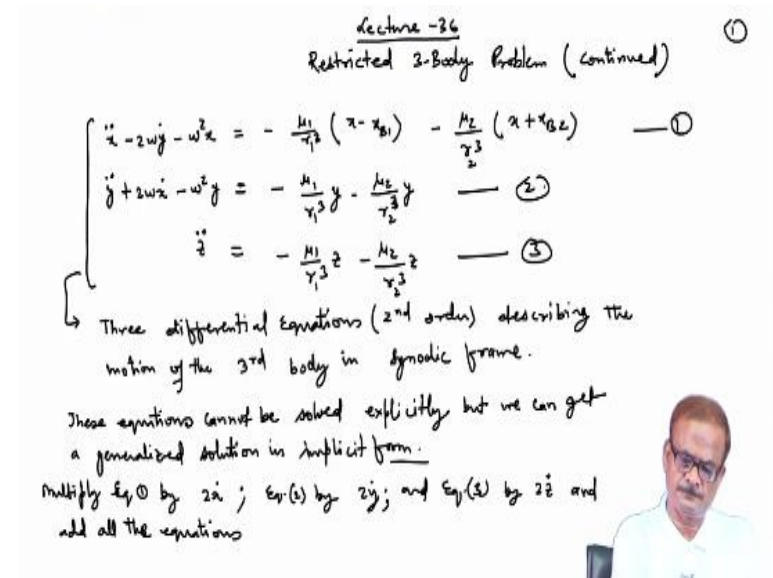 Lecture -36
①
Restricted 3-Body Problem (continued)
ẍ - 2ωẏ - ω²x = - μ₁/r₁³ (x - x_B1) - μ₂/r₂³ (x + x_B2) — ①
ÿ + 2ωẋ - ω²y = - μ₁/r₁³ y - μ₂/r₂³ y — ②
z̈ = - μ₁/r₁³ z - μ₂/r₂³ z — ③
↳ Three differential Equations (2nd order) describing the
motion of the 3rd body in Synodic frame.
These equations cannot be solved explicitly but we can get
a generalized solution in implicit form.
Multiply Eq ① by 2ẋ ; Eq.(2) by 2ẏ ; and Eq.(3) by 2ż and
add all the equations